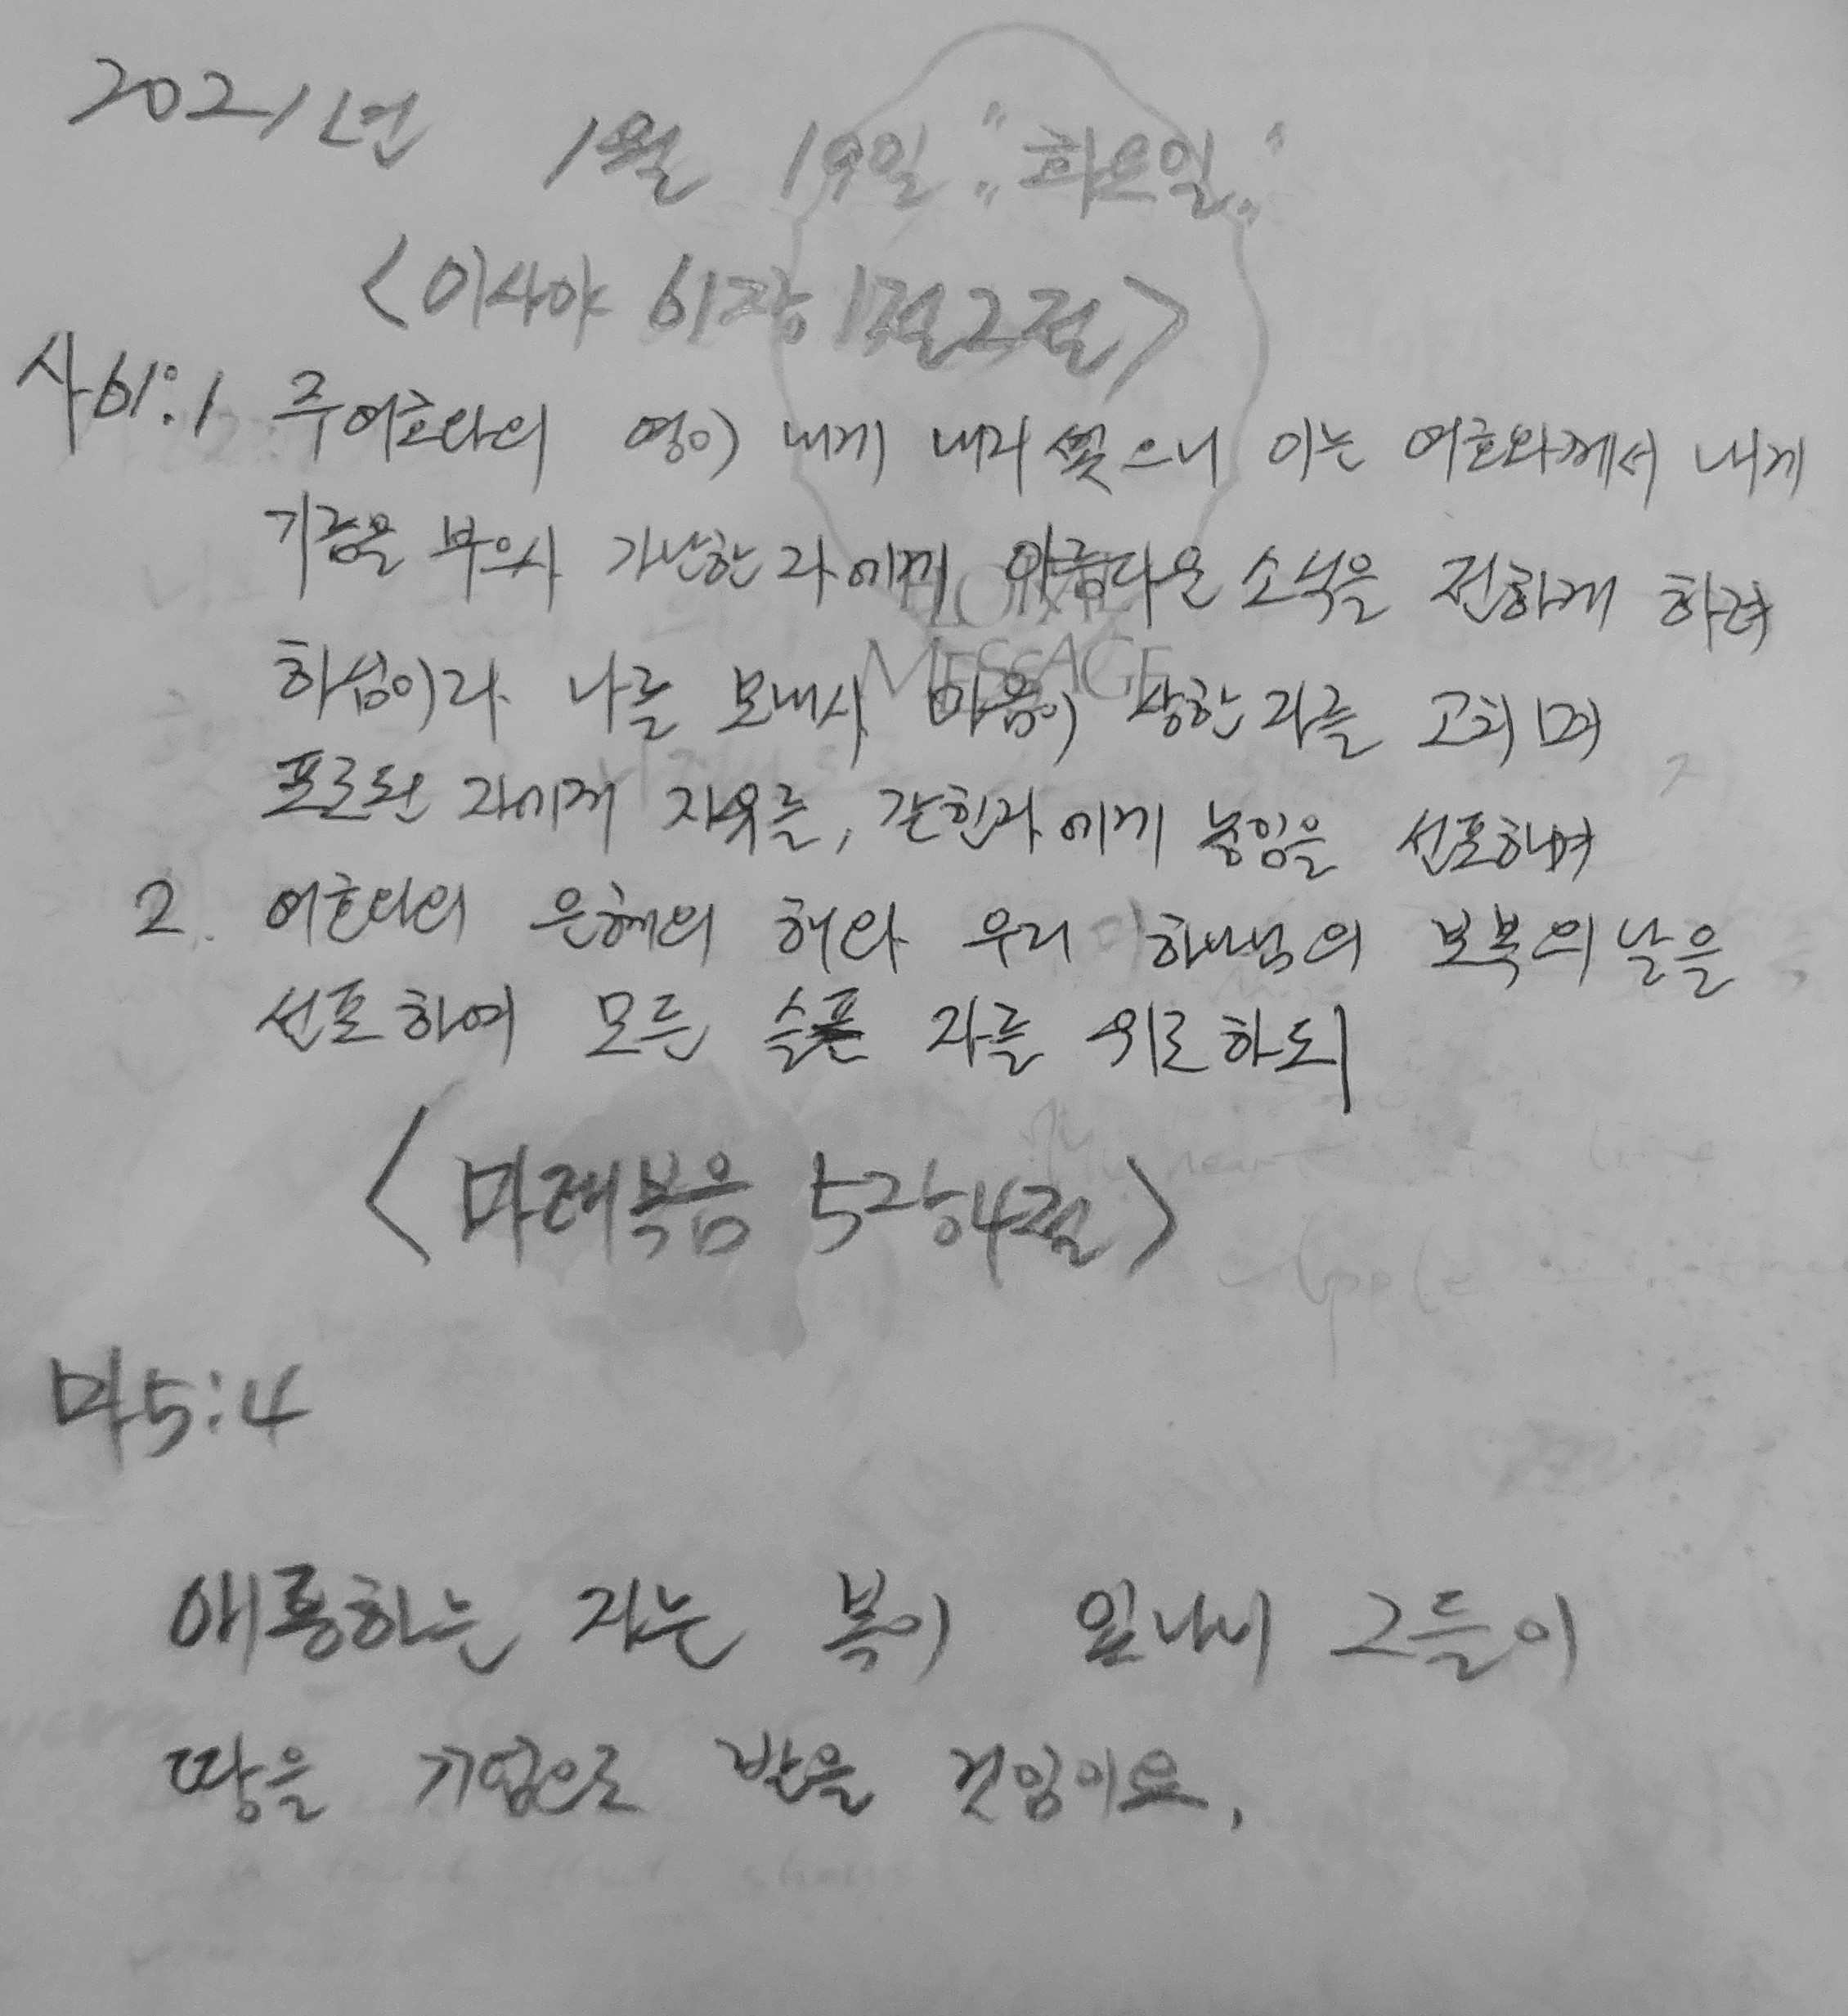 2021년 1월 19일 "화요일"
<이사야 61장 1절 2절>
사61:1 주여호와의 영이 내게 내리셨으니 이는 여호와께서 내게
기름을 부으사 가난한 자에게 아름다운 소식을 전하게 하려
하심이라 나를 보내사 마음이 상한 자를 고치며
포로된 자에게 자유를, 갇힌자에게 놓임을 선포하며
2. 여호와의 은혜의 해와 우리 하나님의 보복의 날을
선포하여 모든 슬픈 자를 위로하되
MESSAGE
<마태복음 5장4절>
마5:4
애통하는 자는 복이 있나니 그들이
땅을 기업으로 받을 것임이요,